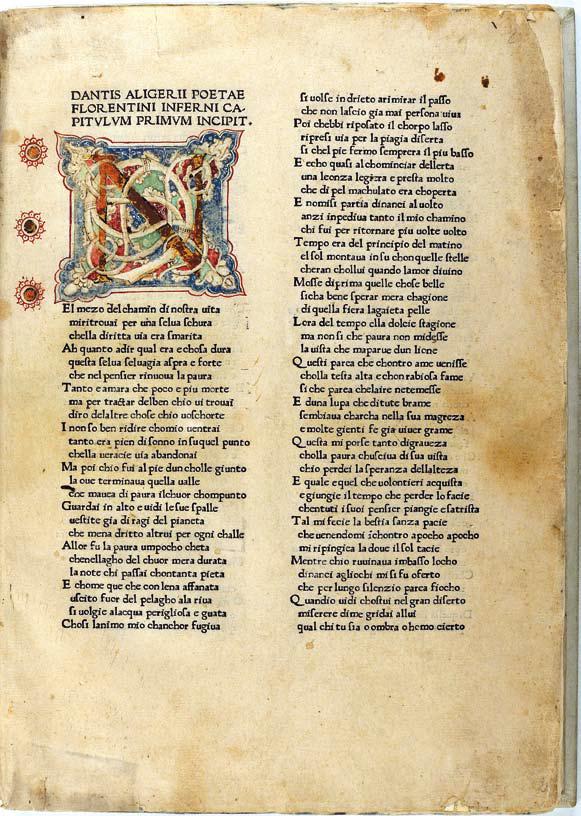 DANTIS ALIGERII POETAE
FLORENTINI INFERNI CA-
PITVLVM PRIMVM INCIPIT.
N
El mezo del chamin di nostra uita
miritrouai per una selua schura
chella diritta uia era smarita
Ah quanto adir qual era e chosa dura
questa selua seluagia aspra e forte
che nel pensier rinuoua la paura
Tanto e amara che poco e piu morte
ma per tractar del ben chio ui trouai
diro delaltre chose chio uo schorte
I non so ben ridire chomio uentrai
tanto era pien di sonno in su quel punto
chella ueracie uia abandonai
Ma poi chio fui al pie dun cholle giunto
la oue terminaua quella ualle
che mauea di paura il chuor chompunto
Guardai in alto e uidi le sue spalle
uestite gia di ragi del pianeta
che mena dritto altrui per ogni challe
Allor fu la paura umpocho cheta
chenellagho del chuor mera durata
la note chi passai chontanta pieta
E chome que che con lena affanata
uscito fuor del pelagho ala riua
si uolgie alacqua perigliosa e guata
Chosi lanimo mio chanchor fugiua
si uolse in drieto arimirar il passo
che non lascio gia mai persona uiua
Poi chebbi riposato il chorpo lasso
ripresi uia per la piagia diserta
si chel pie fermo sempre era il piu basso
E echo quasi al chominciar dellerta
una leonza legera e presta molto
che di pel machulato era choperta
E nomisi partia dinanci al uolto
anzi inpediua tanto il mio chamino
chi fui per ritornare piu uolte uolto
Tempo era del principio del matino
el sol montaua in su chonquelle stelle
cheran chollui quando lamor diuino
Mosse diprima quelle chose belle
sicha bene sperar mera chagione
di quella fiera lagaieta pelle
Lora del tempo ella dolcie stagione
ma non si che paura non midesse
la uista che maparue dun lione
Questi parea che chontro ame uenisse
cholla testa alta e chon rabiosa fame
si che parea chelaire netemesse
E duna lupa che di tute brame
sembiaua charcha nella sua magreza
e molte gienti fe gia uiuer grame
Questa mi porse tanto digraueza
cholla paura chuscia di sua uista
chio perdei la speranza dellalteza
E quale e quel che uolontieri acquista
e giungie il tempo che perder lo facie
chentuti i suoi pensier piangie e satrista
Tal mi fecie la bestia sanza pacie
che uenendomi ichontro apocho apocho
mi ripingica la doue il sol tacie
Mentre chio ruuinaua imbasso locho
dinanci agliochi mi si fu oferto
che per lungo silenzio parea fiocho
Quandio uidi chostui nel gran diserto
miserere di me gridai allui
qual chi tu sia o ombra o homo cierto